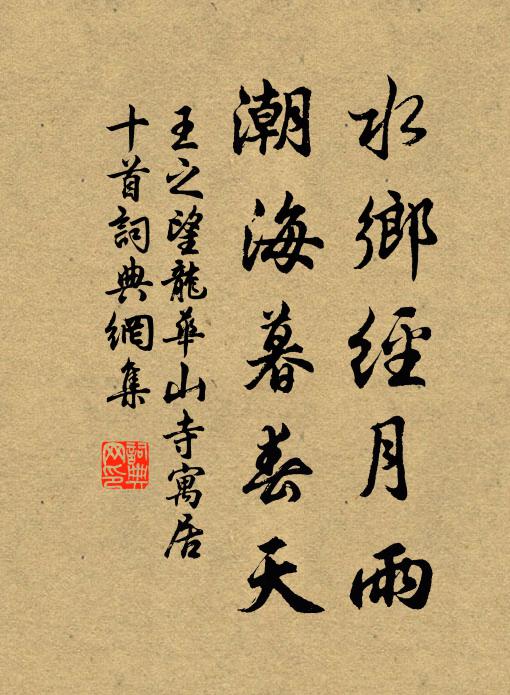 水鄉經月雨
潮海暮春天
王之望龍華山寺寓居
十首詞典網集
詞典網印